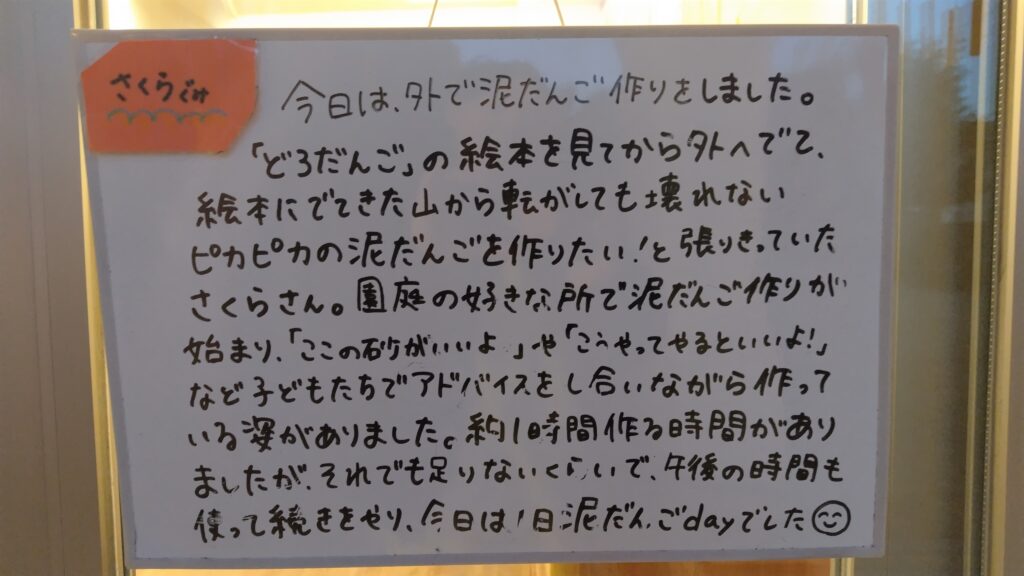 さくらぐみ
今日は、外で泥だんご作りをしました。
「どろだんご」の絵本を見てから外へでて、
絵本にでてきた山から転がしても壊れない
ピカピカの泥だんごを作りたい!と張りきっていた
さくらさん。園庭の好きな所で泥だんご作りが
始まり、「ここの砂がいいよ」や「こうやってやるといいよ!」
など子どもたちでアドバイスをし合いながら作って
いる姿がありました。約1時間作る時間があり
ましたが、それでも足りないくらいで、午後の時間も
使って続きをやり、今日は1日泥だんごdayでした😊